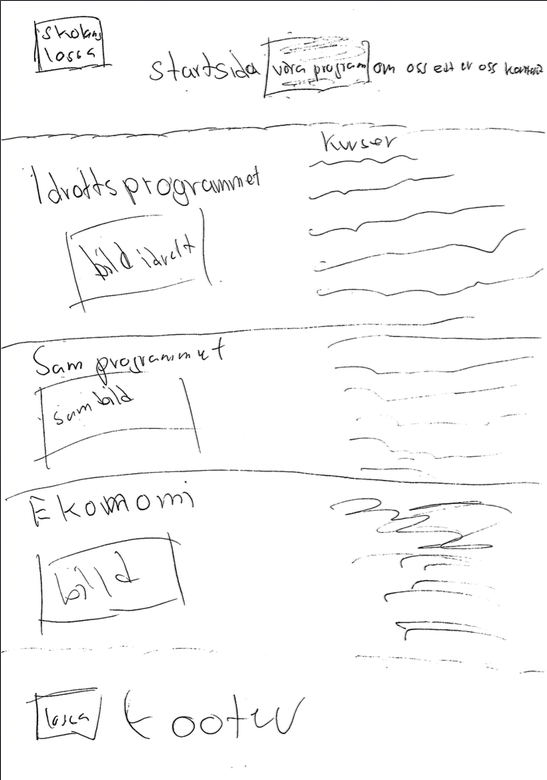 skolans
losca
startsida våra program om oss
Kurser
Idrottsprogrammet
bild idrott
Sam programmet
sam bild
Ekonomi
billd
losca
Footer